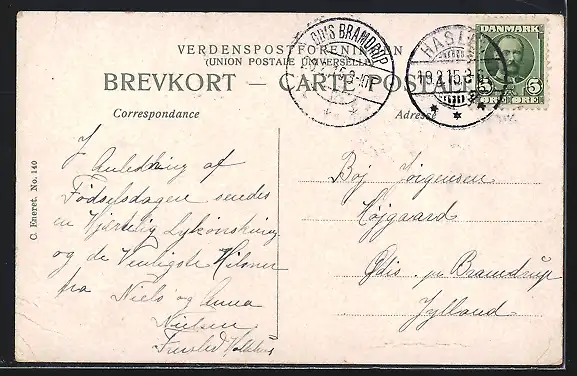 VERDENSPOSTFORENINGEN
(UNION POSTALE UNIVERSELLE)
BREVKORT — CARTE POSTALE
Correspondance
Adresse
ØDIS BRAMDRUP
HAST
19.2.15
DANMARK
5 5
ØRE ØRE
C. Eneret. No. 140
I Anledning af
Fødselsdagen sendes
en Hjærtelig Lykønskning
og de Venligste Hilsner
fra Niels og Anna
Nielsen
Boj Jørgensen
Højgaard
Ødis pr Bramdrup
Jylland